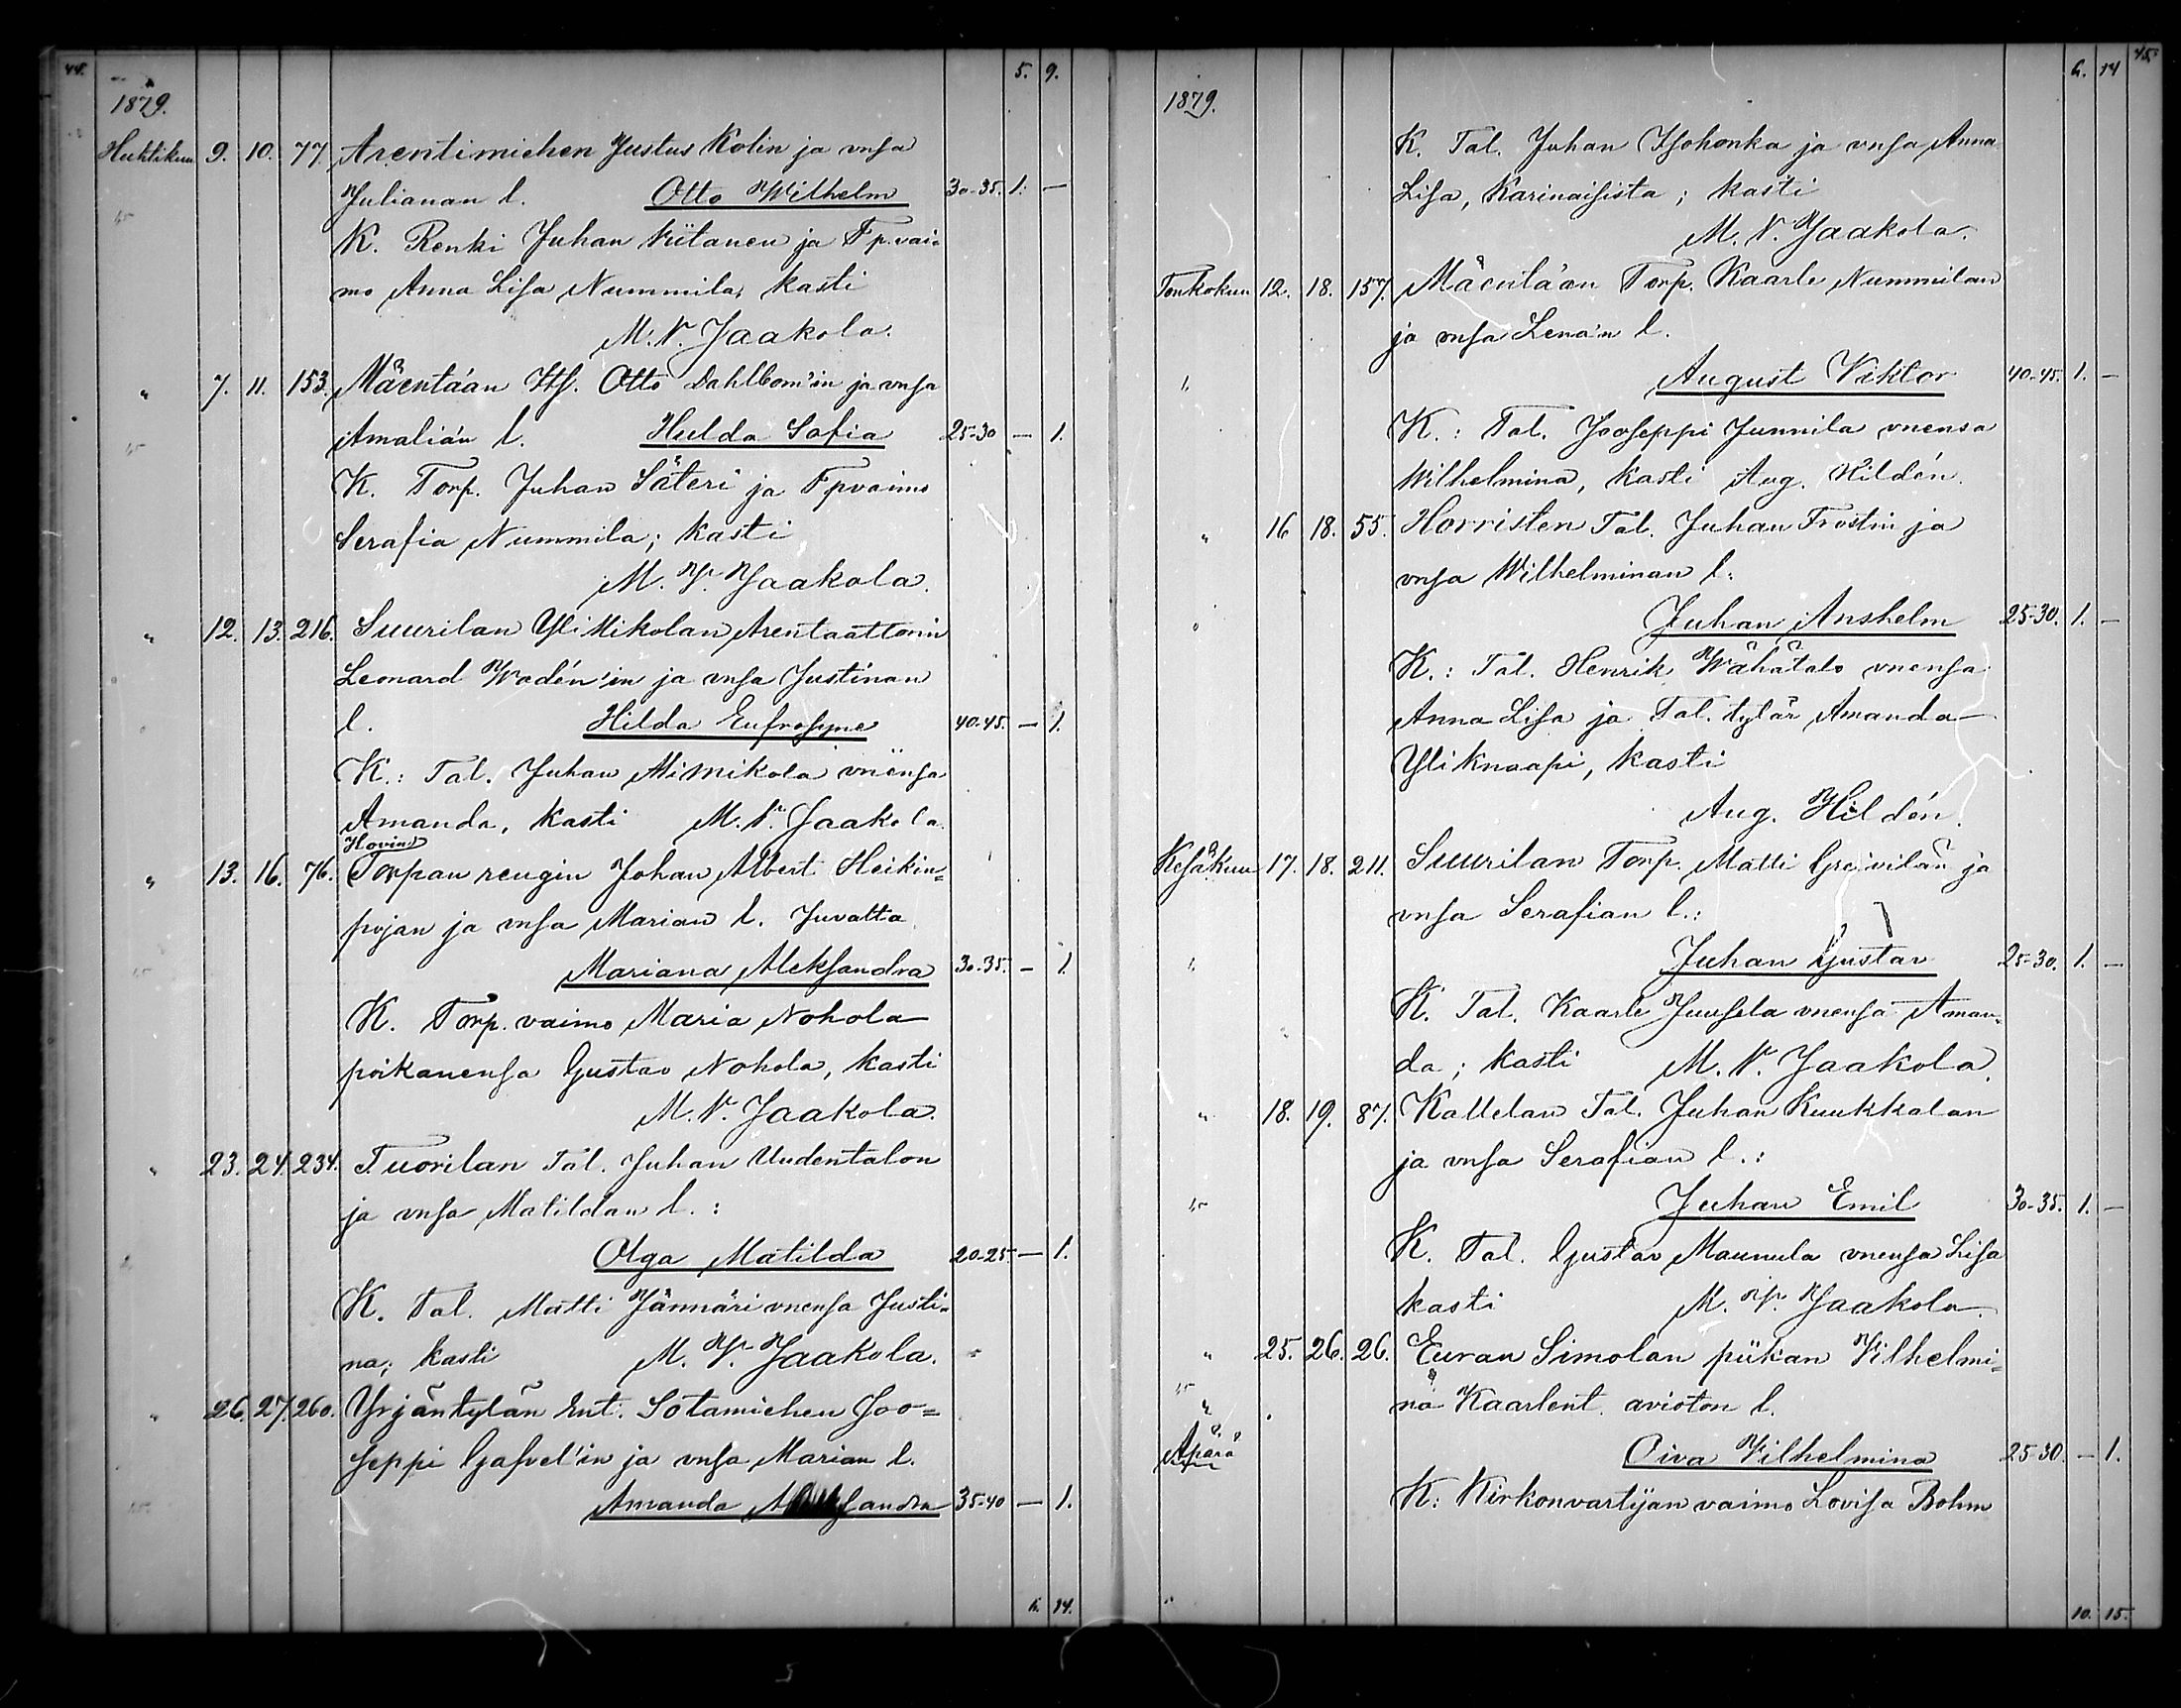 44. 5. 9.
1879.
Huhtikuu 9. 10. 77. Arentimiehen Justus Kolin ja vnsa
Julianan l. Otto Wilhelm 30-35. 1. —
K. Renki Juhan Viitanen ja Tp.vai-
mo Anna Lisa Nummila, kasti
M. V. Jaakola.
" 7. 11. 153. Mäentään Its. Otto Dahlbom'in ja vnsa
Amalian l. Hulda Sofia 25-30 — 1.
K. Torp. Juhan Säteri ja Tpvaimo
Serafia Nummila; kasti
M. V. Jaakola.
" 12. 13. 216. Suurilan Yli Mikolan Arentaattorin
Leonard Wadén'in ja vnsa Justinan
l. Hilda Eufrosyne 40-45. — 1.
K.: Tal. Juhan Alimikola vnensa
Amanda, kasti M. V. Jaakola.
Hovin
" 13. 16. 76. Torpan rengin Johan Albert Heikin=
pojan ja vnsa Marian l. Juvalta
Mariana Aleksandra 30-35. — 1.
K. Torp. vaimo Maria Nohola
poikanensa Gustav Nohola, kasti
M. V. Jaakola.
" 23. 24. 234. Tuorilan Tal. Juhan Uudentalon
ja vnsa Matildan l.:
Olga Matilda 20-25. — 1.
K. Tal. Matti Jännäri vnensa Justi-
na; kasti M. V. Jaakola.
" 26. 27. 260. Yrjäntylän Ent. Sotamiehen Joo=
seppi Gasvel'in ja vnsa Marian l.
Amanda 35-40 — 1.
6. 14.
6. 14 45.
1879.
K. Tal. Juhan Isohonka ja vnsa Anna
Lisa, Karinaisista; kasti
M. V. Jaakola.
Toukokuu 12. 18. 157. Mäentään Torp. Kaarle Nummilan
ja vnsa Lena'n l.
August Viktor 40-45. 1. —
K.: Tal. Jooseppi Junnila vnensa
Wilhelmina, kasti Aug. Hildén.
" 16 18. 55. Horristen Tal. Juhan Frostin ja
vnsa Wilhelminan l:
Juhan Anshelm 25-30. 1. —
K.: Tal. Henrik Wähätalo vnensa
Anna Lisa ja Tal. tytär Amanda
Yli Knaapi, kasti
Aug. Hildén.
Kesäkuu 17. 18. 211. Suurilan Torp. Matti Greivilän ja
vnsa Serafian l.:
Juhan Gustav 25-30. 1. —
K. Tal. Kaarle Juusela vnensa Aman-
da; kasti M. V. Jaakola.
" 18. 19. 87. Kallelan Tal. Juhan Kuukkalan
ja vnsa Serafian l.:
Juhan Emil 30-35. 1. —
K. Tal. Gustav Maunula vnensa Lisa
kasti M. V. Jaakola.
" 25. 26. 26. Euran Simolan piikan Vilhelmi=
na Kaarlent. avioton l.
Äpärä
Oiva Vilhelmina 25-30. — 1.
K: Kirkonvartijan vaimo Lovisa Bohm
10. 15.